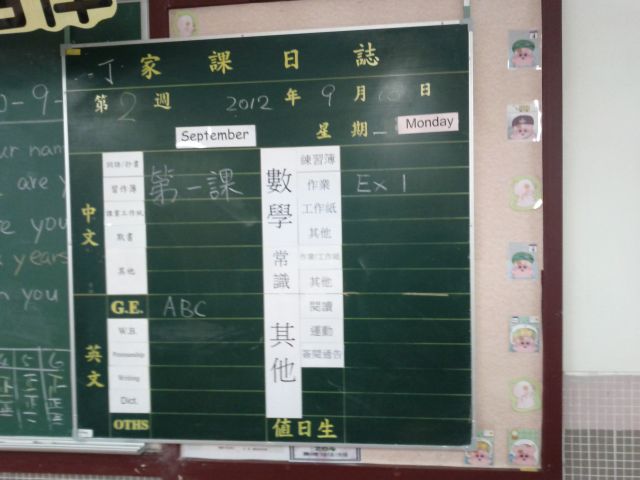 丁 家課日誌
第 2 週 2012 年 9 月 10 日
September 星期一 Monday
中文
詞語/抄書
習作簿 第一課
課業工作紙
默書
其他
英文
G.E. ABC
W.B.
Penmanship
Writing
Dict.
OTHS
數學
練習簿
作業 Ex 1
工作紙
其他
常識
作業/工作紙
其他
其他
閱讀
運動
簽閱通告
值日生
0-9-
ur nam
are y
e you
years
n you
4 5 6